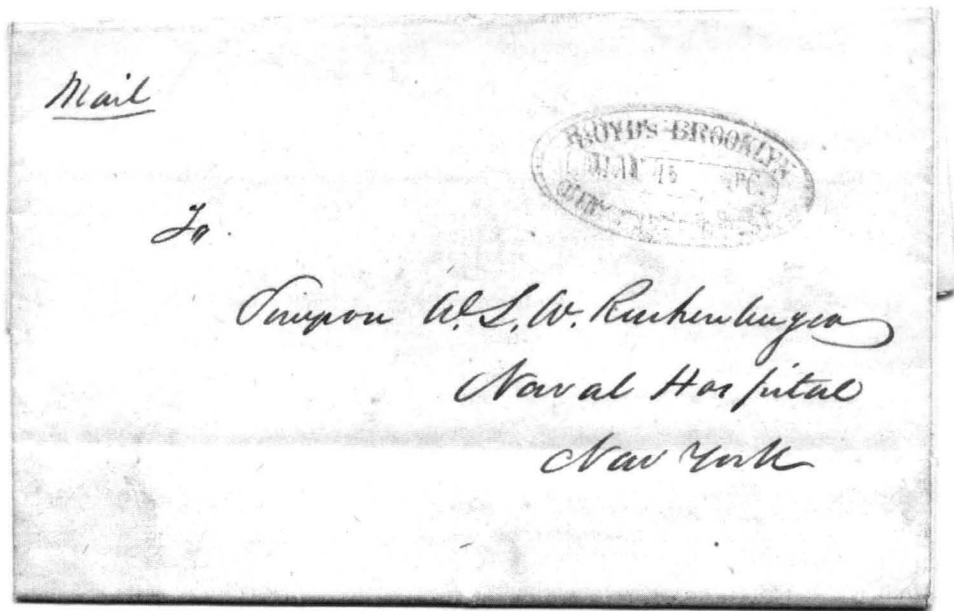 Mail
BOYD'S BROOKLYN
JAN 15
To
Surgeon W. S. W. Ruschenberger
Naval Hospital
New York